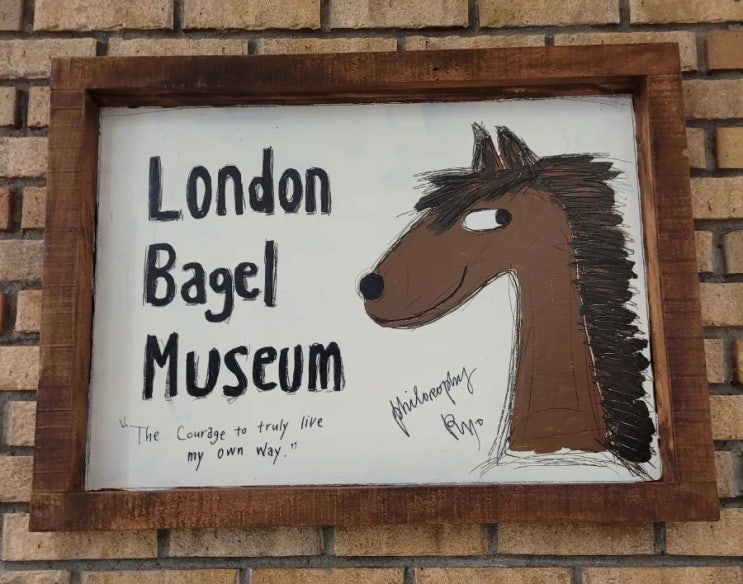 London
Bagel
Museum
"The Courage to truly live
my own way."
philosophy
Ryo